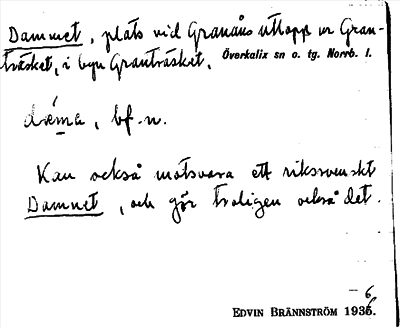 Dammet, plats vid Granåns utlopp ur Gran-
träsket, i byn Granträsket. Överkalix sn o. tg. Norrb. l.
bf. n.
Kan också motsvara ett rikssvenskt
Damnet, och gör troligen också det.
- 6
EDVIN BRÄNNSTRÖM 1936.